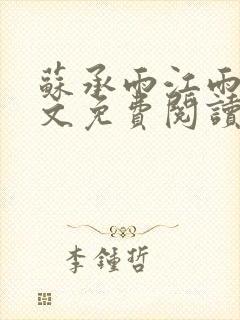 蘇承雨江雨
文免費閱讀
李鍾哲